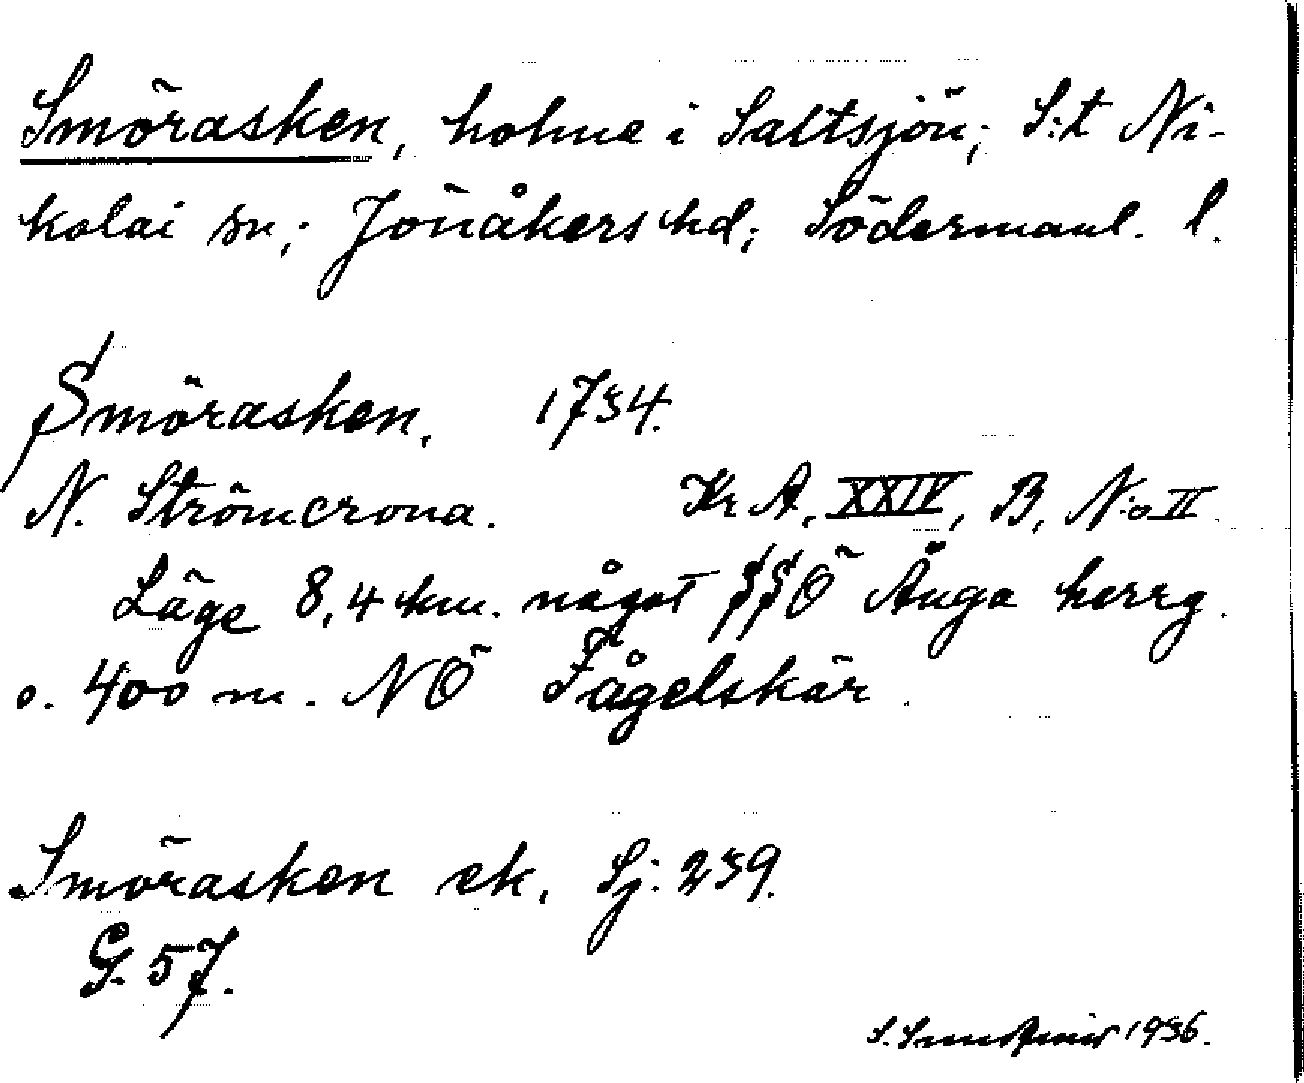 Smörasken, holme i Saltsjön; S:t Ni-
kolai sn; Jönåkers hd; Södermanl. l.
Smörasken. 1734.
N. Strömcrona. Kr A, XXIV, B, N:o II.
Läge 8,4 km. något SSÖ Ånga herrg.
o. 400 m. NÖ Fågelskär.
Smörasken ek. Sj: 239.
G. 57.
S. 1936.